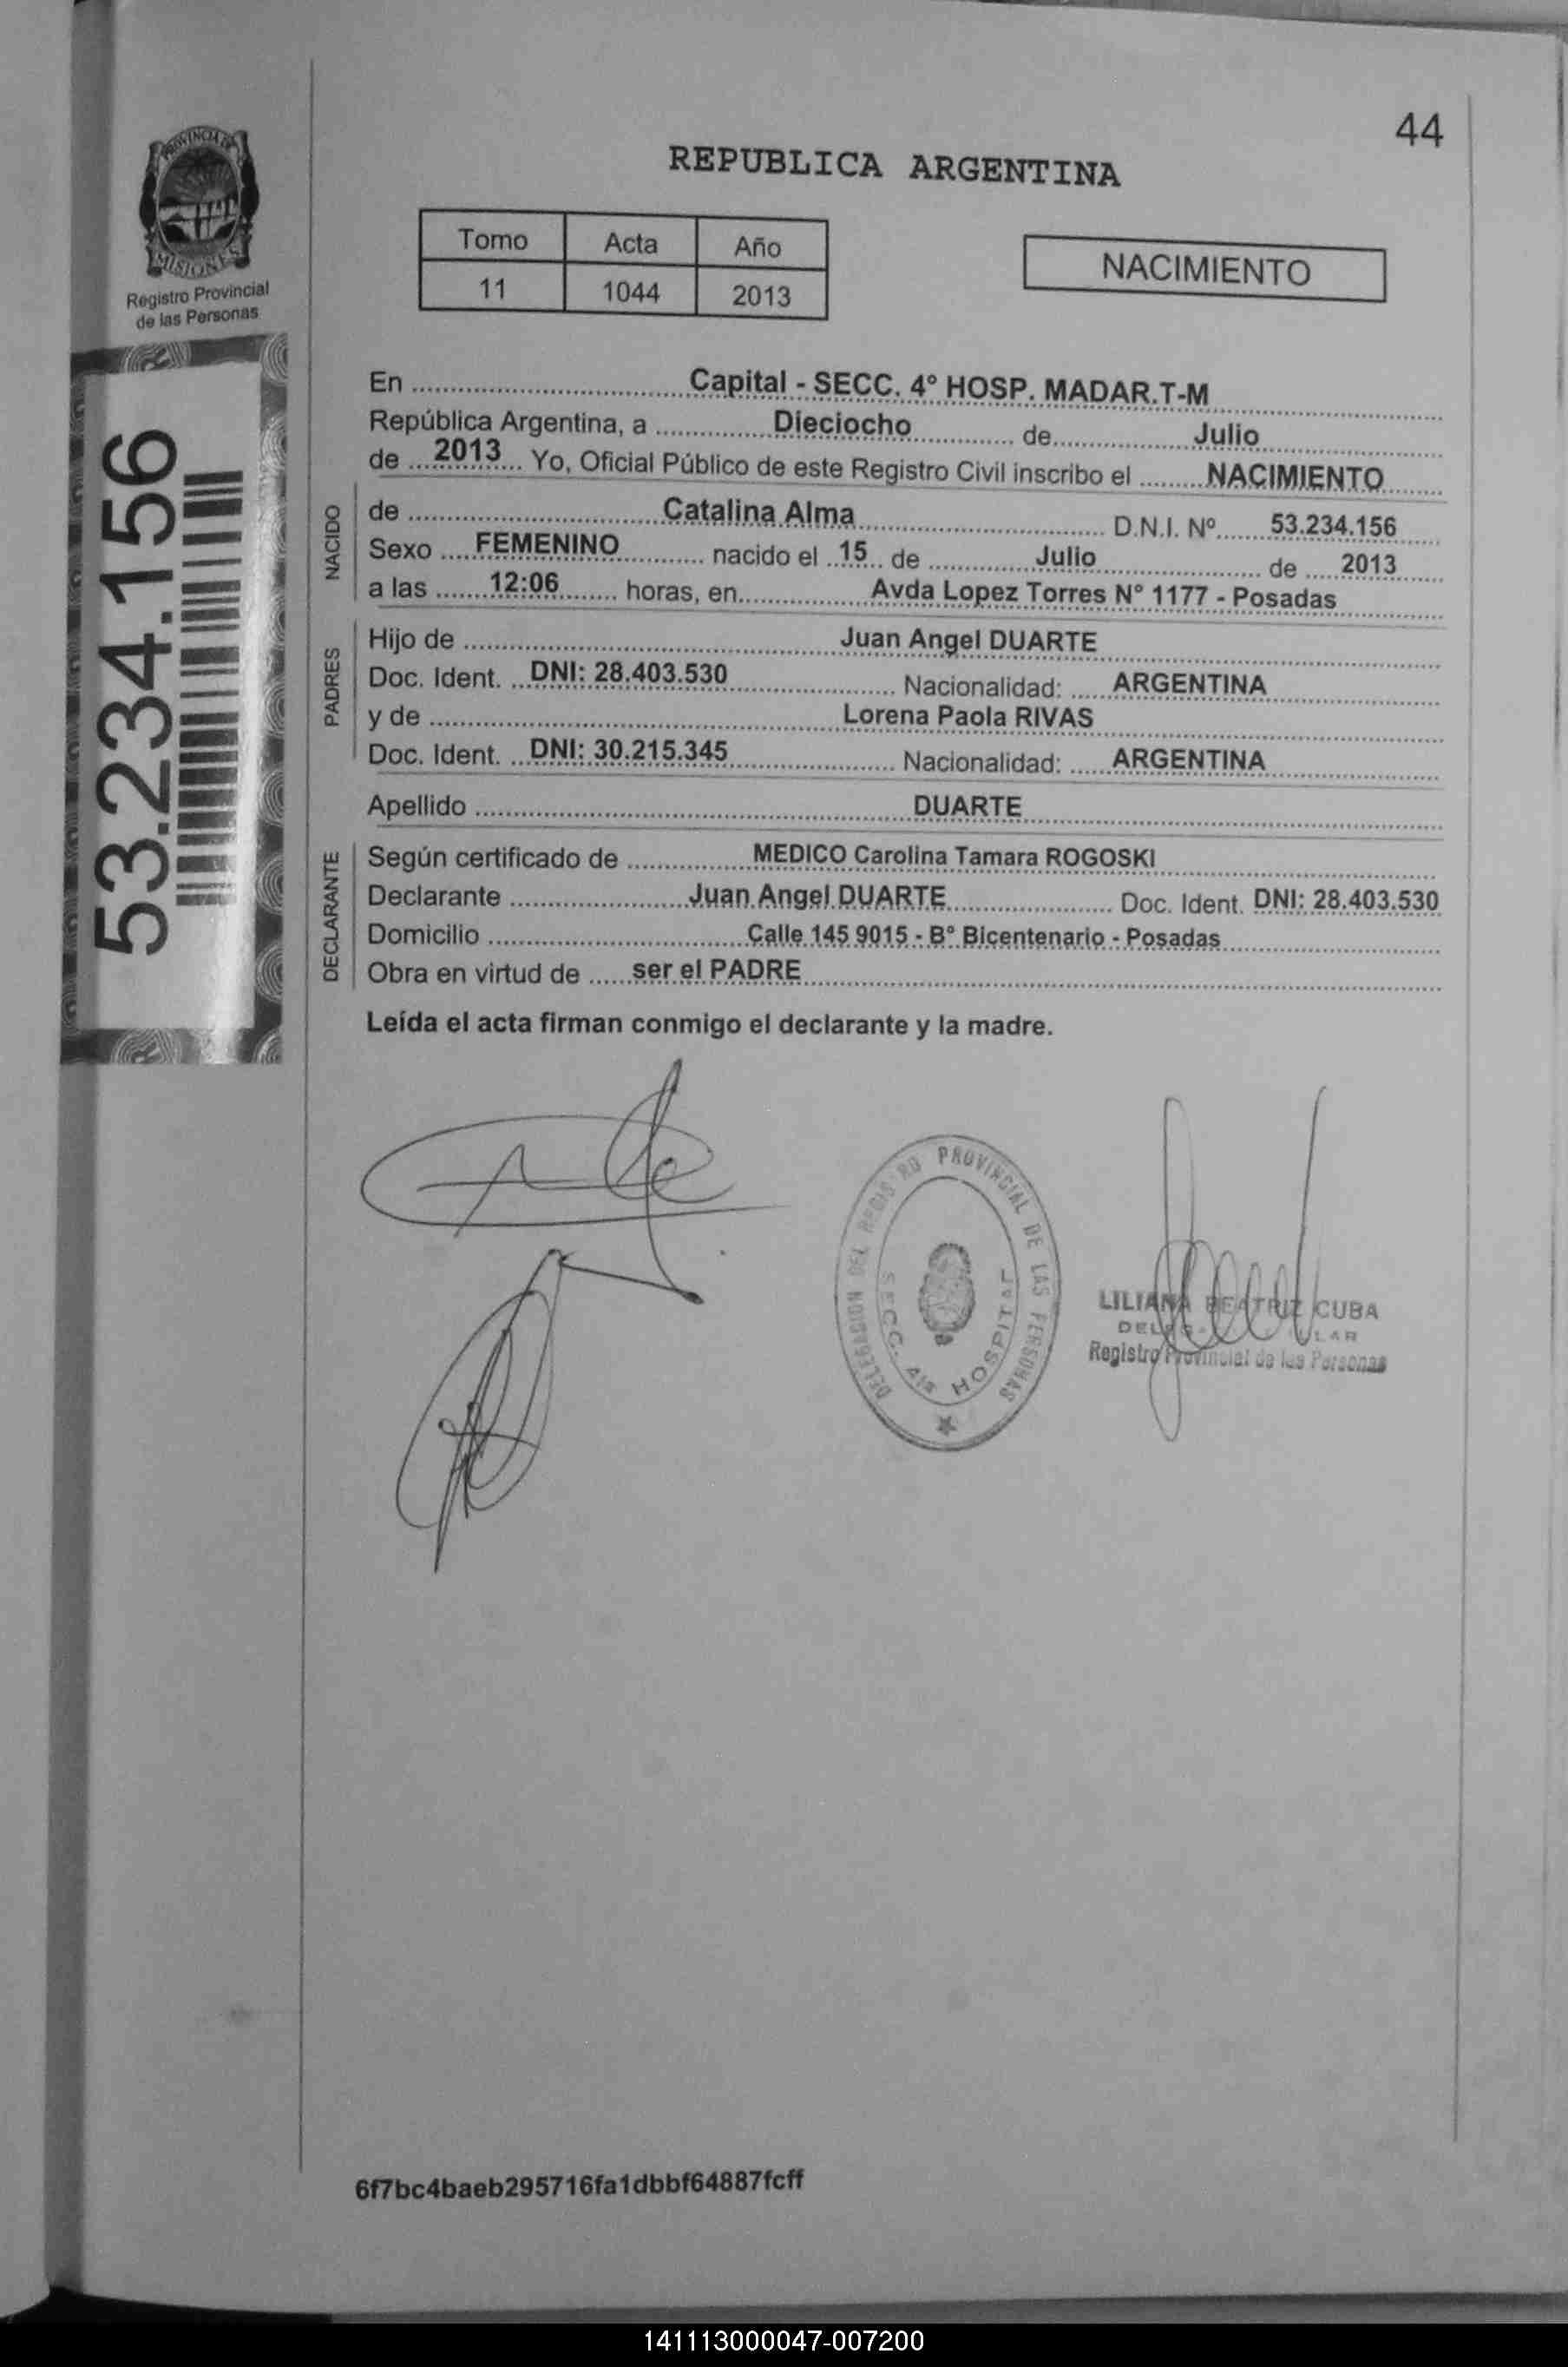 44
PROVINCIA DE
MISIONES
Registro Provincial
de las Personas
53.234.156
REPUBLICA ARGENTINA
Tomo Acta Año
11 1044 2013
NACIMIENTO
En Capital - SECC. 4º HOSP. MADAR.T-M
República Argentina, a Dieciocho de Julio
de 2013 Yo, Oficial Público de este Registro Civil inscribo el NACIMIENTO
NACIDO
de Catalina Alma D.N.I. Nº 53.234.156
Sexo FEMENINO nacido el 15 de Julio de 2013
a las 12:06 horas, en Avda Lopez Torres N° 1177 - Posadas
PADRES
Hijo de Juan Angel DUARTE
Doc. Ident. DNI: 28.403.530 Nacionalidad: ARGENTINA
y de Lorena Paola RIVAS
Doc. Ident. DNI: 30.215.345 Nacionalidad: ARGENTINA
Apellido DUARTE
DECLARANTE
Según certificado de MEDICO Carolina Tamara ROGOSKI
Declarante Juan Angel DUARTE Doc. Ident. DNI: 28.403.530
Domicilio Calle 145 9015 - B° Bicentenario - Posadas
Obra en virtud de ser el PADRE
Leída el acta firman conmigo el declarante y la madre.
DELEGACION DEL REGISTRO PROVINCIAL DE LAS PERSONAS
SECC. 4ta HOSPITAL
LILIANA BEATRIZ CUBA
Registro Provincial de las Personas
6f7bc4baeb295716fa1dbbf64887fcff
141113000047-007200